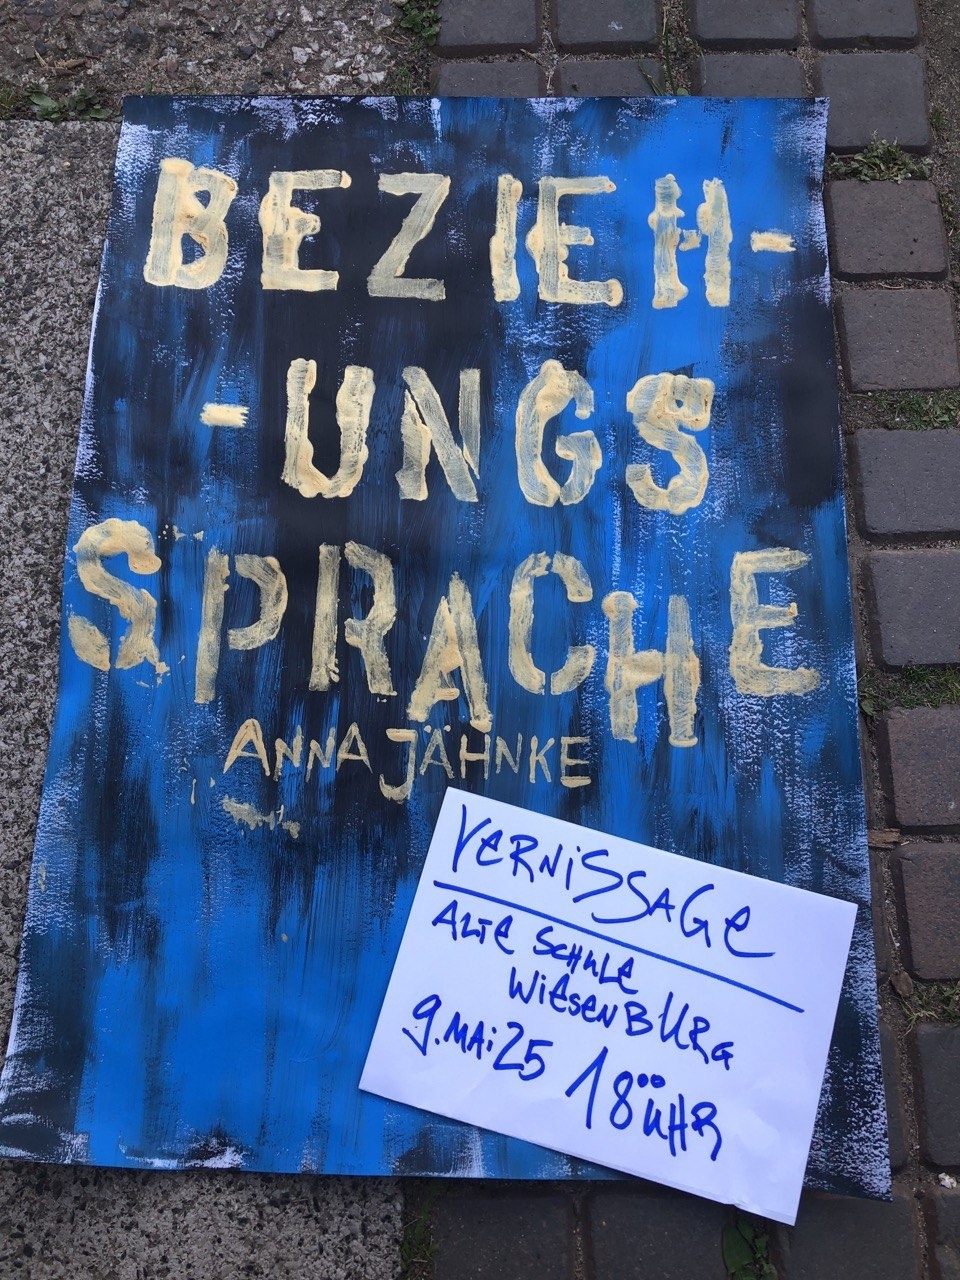 BEZIEH-
-UNGS
SPRACHE
ANNA JÄHNKE
VERNISSAGE
ALTE SCHULE
WIESENBURG
9. MAI 25 18⁰⁰ UHR